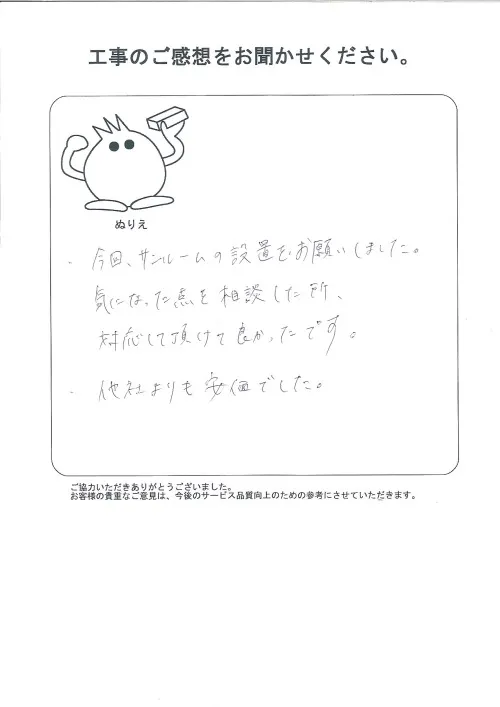 工事のご感想をお聞かせください。
ぬりえ
・今回、サンルームの設置をお願いしました。
気になった点を相談した所、
対応して頂けて良かったです。
・他社よりも安価でした。
ご協力いただきありがとうございました。
お客様の貴重なご意見は、今後のサービス品質向上のための参考にさせていただきます。